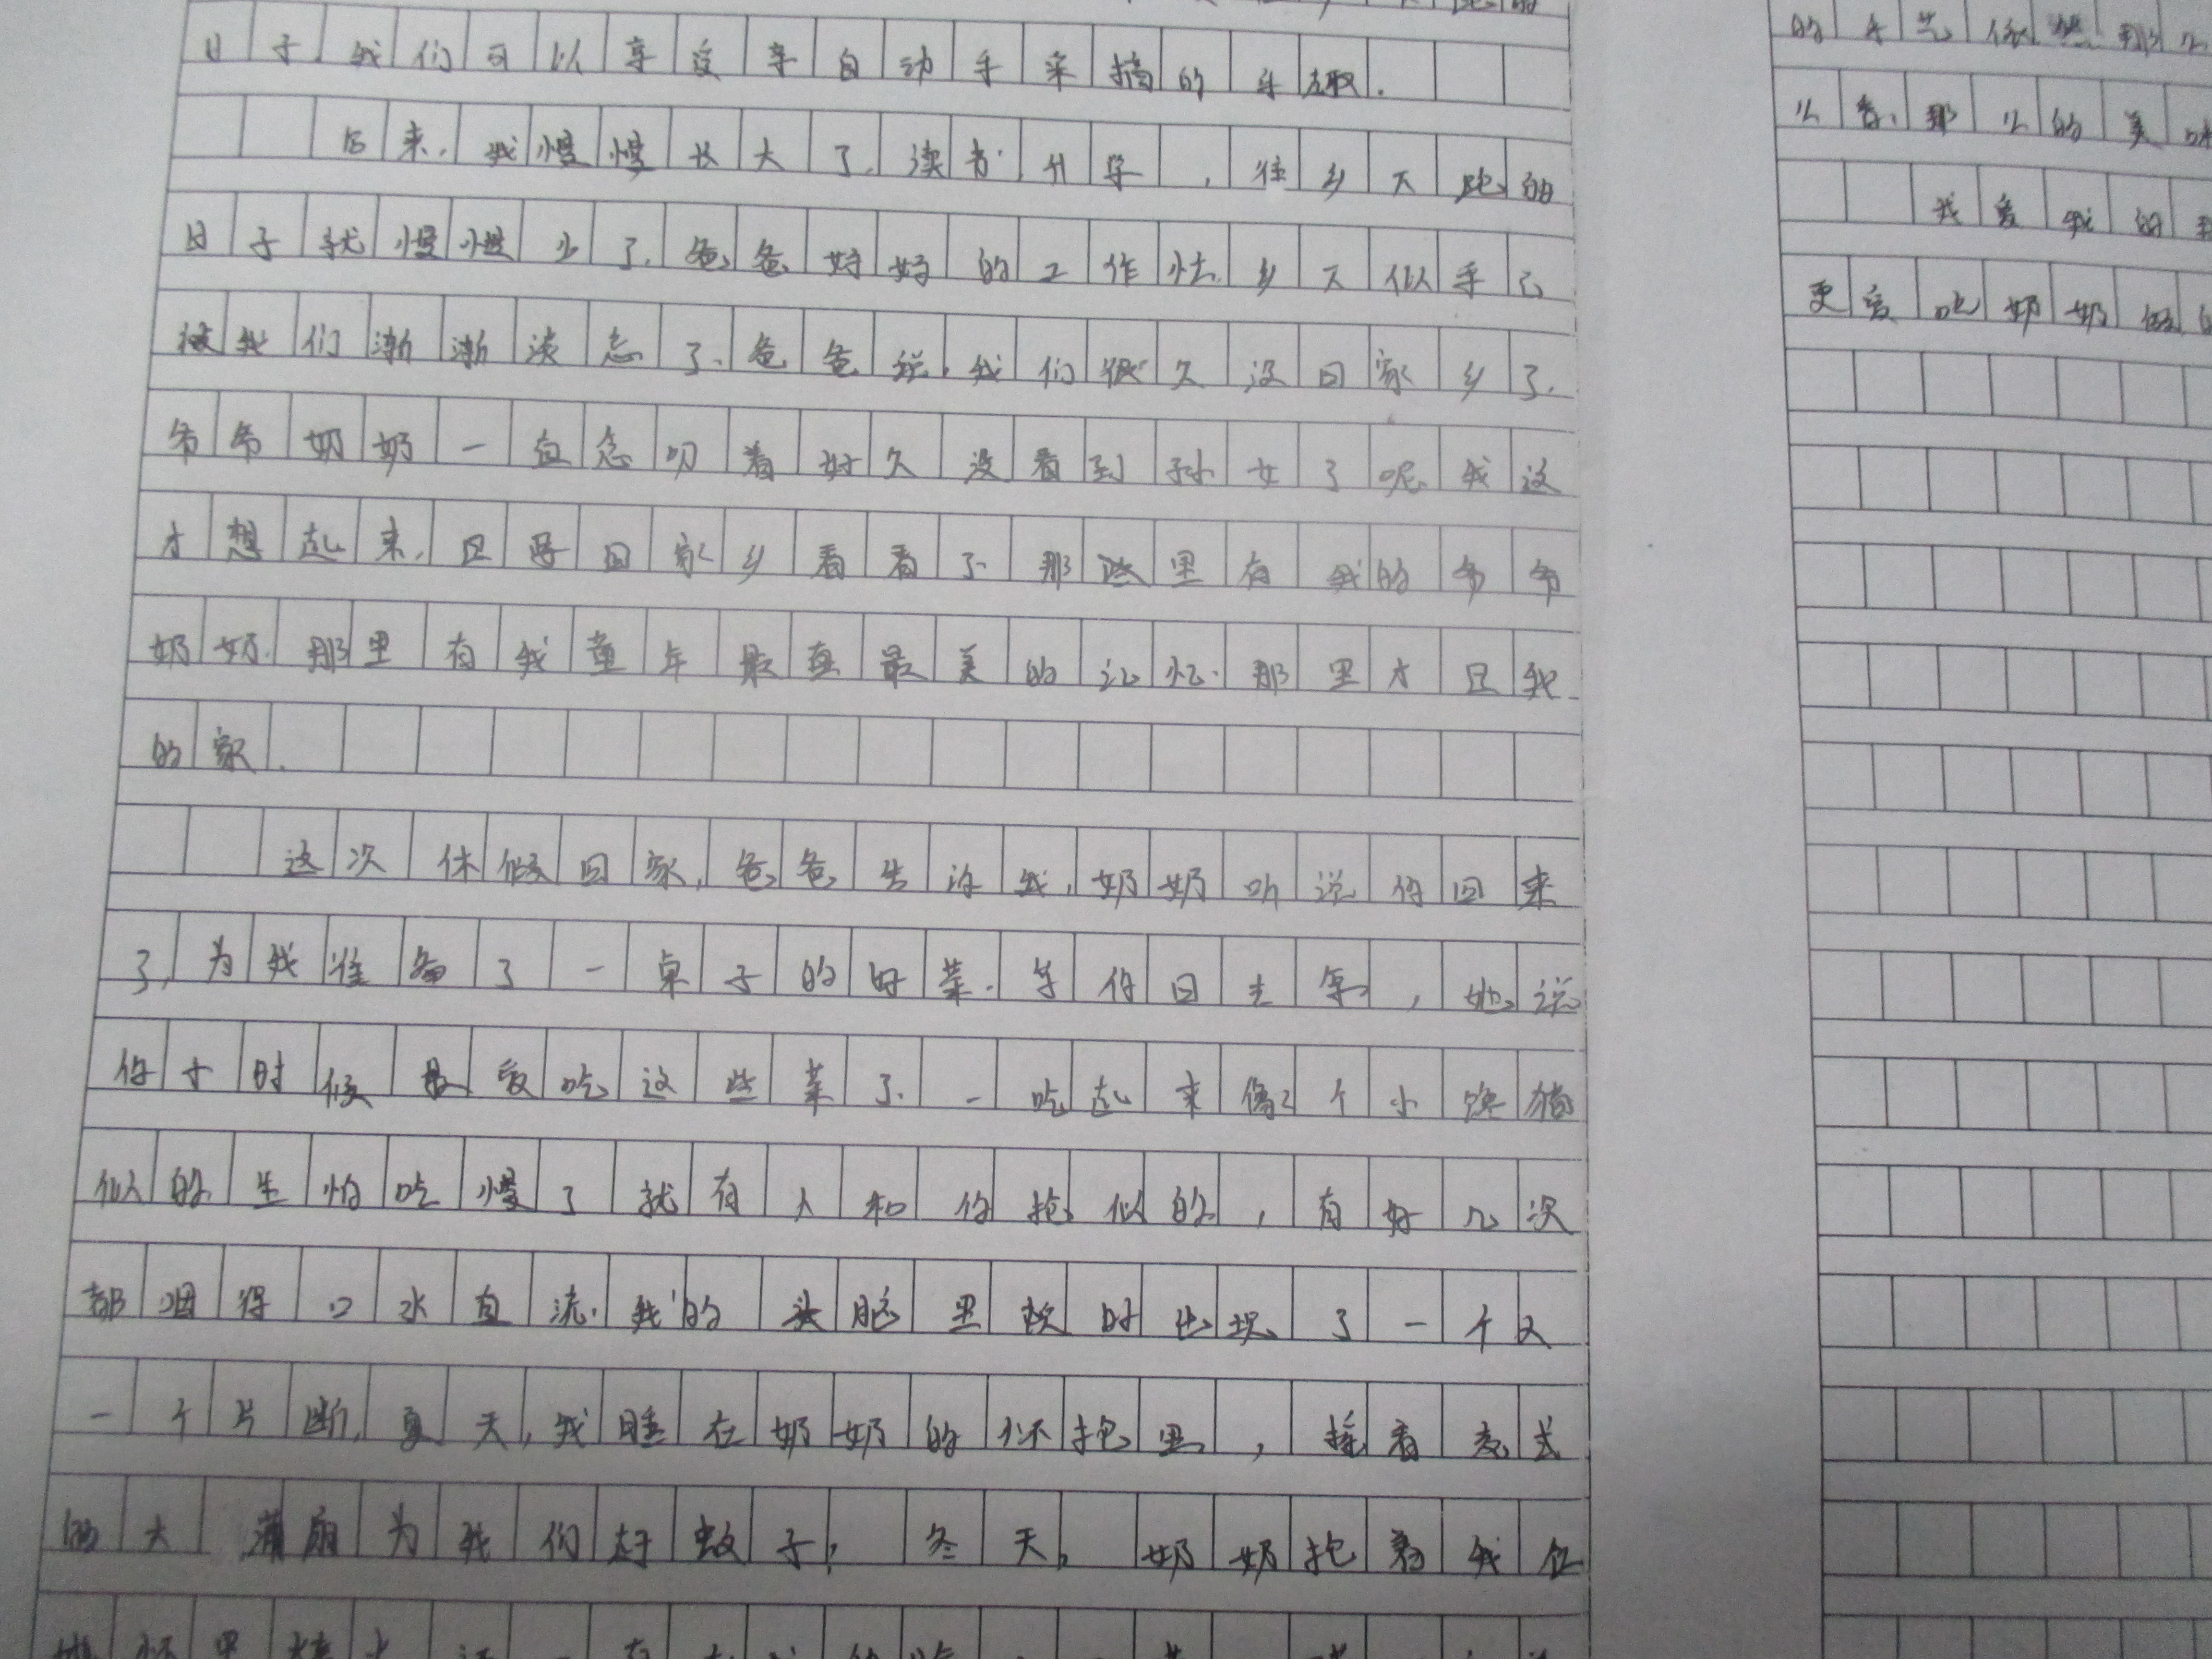 日子,我们可以享受亲自动手采摘的乐趣.
后来,我慢慢长大了,读书升学,往乡下跑的
日子就慢慢少了.爸爸好好的工作忙.乡下似乎已
被我们渐渐淡忘了.爸爸说,我们很久没回家乡了.
爷爷奶奶一直念叨着好久没看到孙女了呢.我这
才想起来,回家乡看看了.那里有我的爷爷
奶奶.那里有我童年最真最美的记忆.那里才是我
的家.
这次休假回家,爸爸告诉我,奶奶听说你回来
了,为我准备了一桌子的好菜.等你回去拿,她说
你小时候最爱吃这些菜了.一吃起来像个小馋猫
似的.生怕吃慢了就有人和你抢似的,有好几次
都烟得口水直流.我的头脑里顿时出现了一个又
一个片断,夏天,我睡在奶奶的怀抱里,摇着老式
的大蒲扇为我们赶蚊子,冬天,奶奶抱着我在
的手艺依然那么
么香,那么的美味
我爱我的
更爱吃奶奶做的